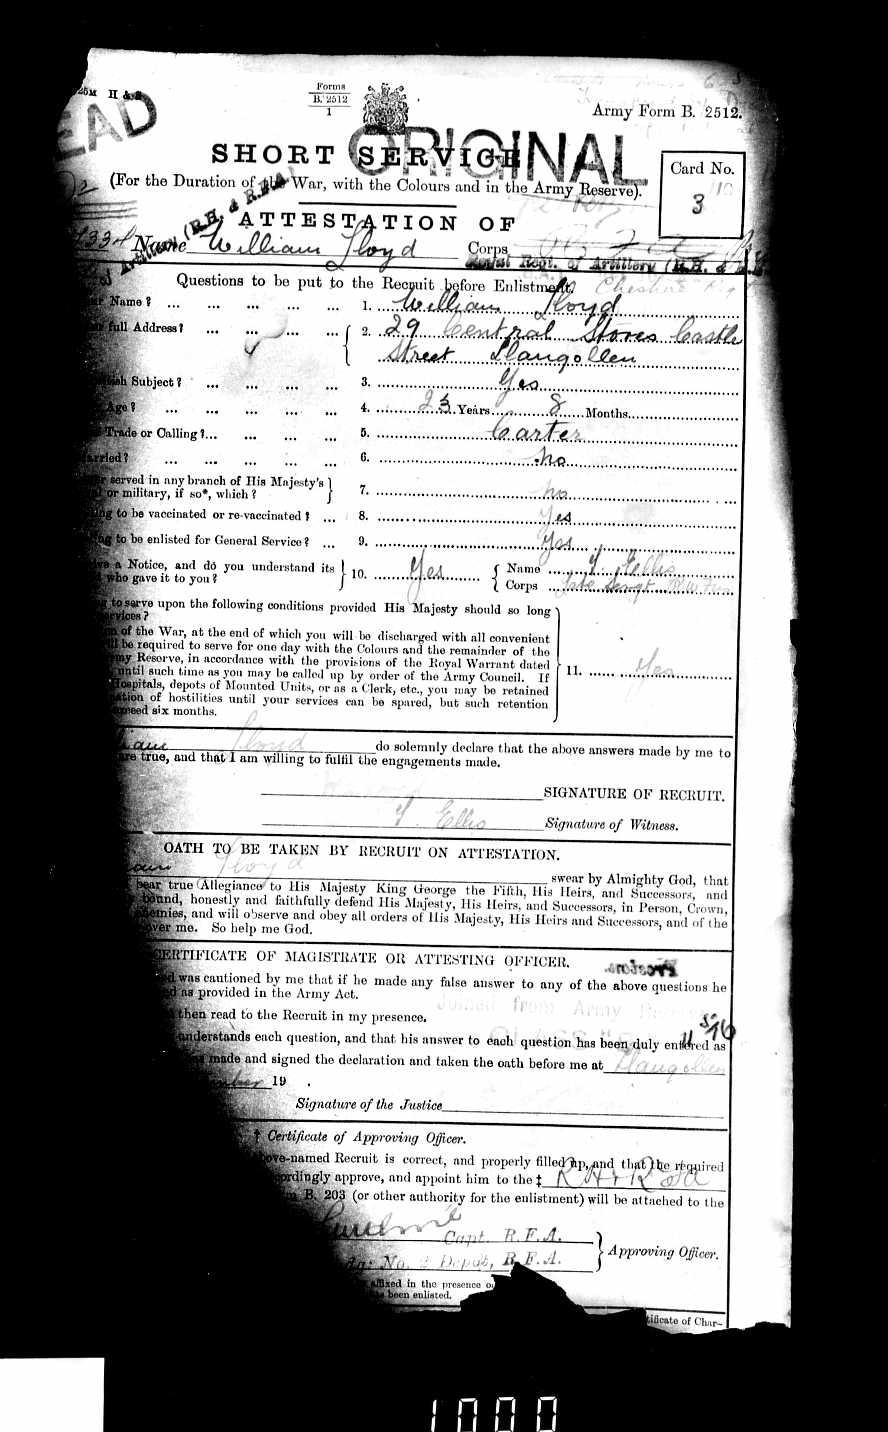 25M H & S
Forms
B. 2512
1
Army Form B. 2512.
EAD
ORIGINAL
SHORT SERVICE
(For the Duration of the War, with the Colours and in the Army Reserve).
Card No.
3
ATTESTATION OF
Name William Lloyd Corps
Royal Regt. of Artillery (R.H. & R.F.A.)
Questions to be put to the Recruit before Enlistment.
Cheshire
Name ? ... ... ... ... 1. William Lloyd
full Address? ... ... ... ... 2. 29 Central Stores Castle
Street Llangollen
Subject ? ... ... ... 3. Yes
Age ? ... ... ... ... ... 4. 23 Years 8 Months
Trade or Calling ?... ... ... ... 5. Carter
... ... ... ... 6. No
served in any branch of His Majesty's
or military, if so*, which ? 7. No
to be vaccinated or re-vaccinated ? ... 8. Yes
to be enlisted for General Service ? ... 9. Yes
a Notice, and do you understand its
who gave it to you ? 10. Yes Name Ellis
Corps late Sergt
to serve upon the following conditions provided His Majesty should so long
services ?
of the War, at the end of which you will be discharged with all convenient
be required to serve for one day with the Colours and the remainder of the
Reserve, in accordance with the provisions of the Royal Warrant dated
until such time as you may be called up by order of the Army Council. If
Hospitals, depots of Mounted Units, or as a Clerk, etc., you may be retained
of hostilities until your services can be spared, but such retention
exceed six months.
11. Yes
Lloyd do solemnly declare that the above answers made by me to
are true, and that I am willing to fulfil the engagements made.
SIGNATURE OF RECRUIT.
Ellis Signature of Witness.
OATH TO BE TAKEN BY RECRUIT ON ATTESTATION.
Lloyd swear by Almighty God, that
bear true Allegiance to His Majesty King George the Fifth, His Heirs, and Successors, and
bound, honestly and faithfully defend His Majesty, His Heirs, and Successors, in Person, Crown,
enemies, and will observe and obey all orders of His Majesty, His Heirs and Successors, and of the
over me. So help me God.
CERTIFICATE OF MAGISTRATE OR ATTESTING OFFICER.
Preston
was cautioned by me that if he made any false answer to any of the above questions he
as provided in the Army Act.
Joined from Army Reserve
then read to the Recruit in my presence.
understands each question, and that his answer to each question has been duly entered as
made and signed the declaration and taken the oath before me at Llangollen
19 .
Signature of the Justice
† Certificate of Approving Officer.
above-named Recruit is correct, and properly filled up, and that the required
accordingly approve, and appoint him to the ‡ R H & R F A
B. 203 (or other authority for the enlistment) will be attached to the
Capt. R.F.A.
Depot, R.F.A.
Approving Officer.
affixed in the presence
been enlisted.
tificate of Char-
1000